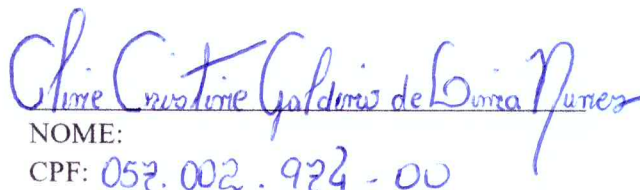 Cline Cristine Galdino de Lima Nunes
NOME:
CPF: 057.002.974-00